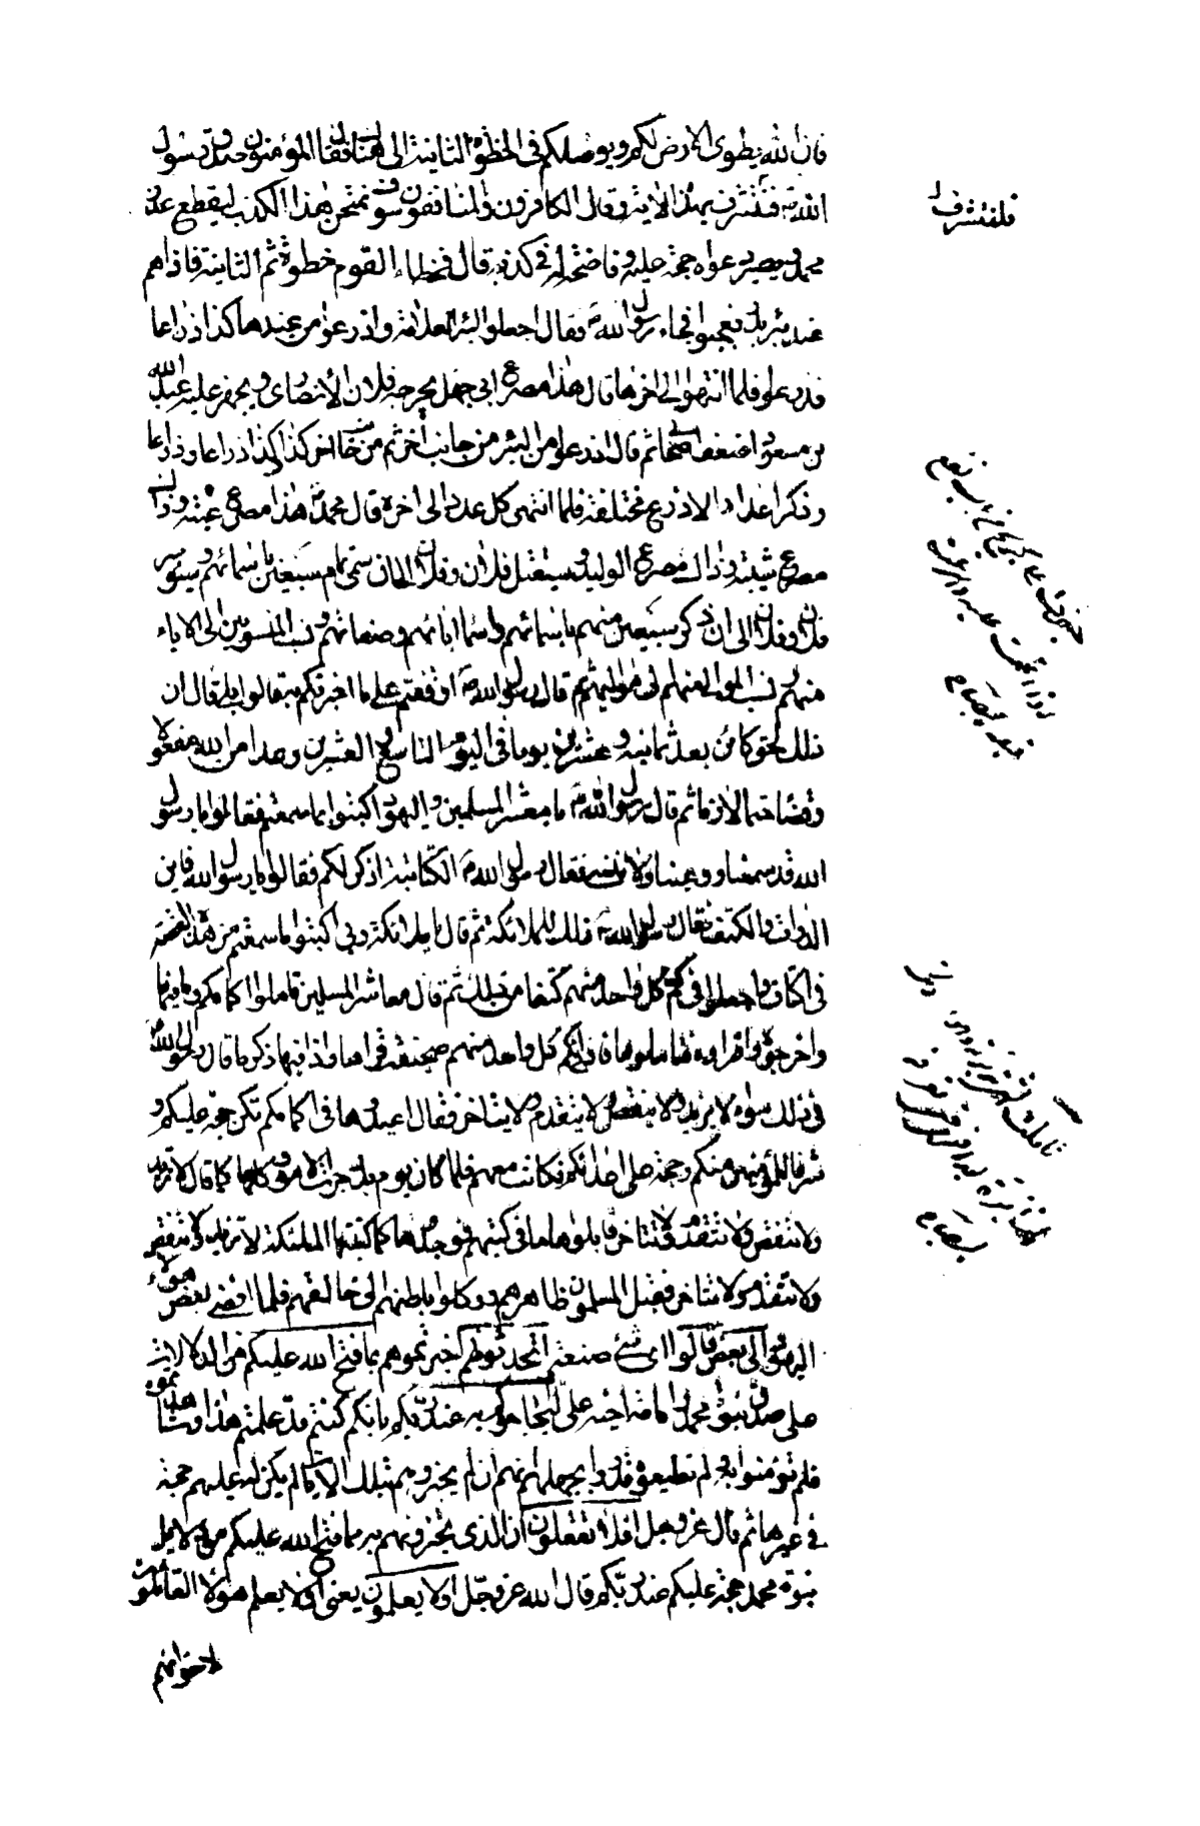 فان الله يطوي الارض لكم ويوصلكم في الخطوة الثانية الى هناك فقال المؤمنون صدق رسول
الله ص فنتشرف بهذه الاية وقال الكافرون والمنافقون سوف نمتحن هذا الكذب ليقطع عذر
محمد ويصير دعواه حجة عليه وفاضحة له في كذبه قال فخطا القوم خطوة ثم الثانية فاذا هم
عند بئر بدر فعجبوا فجاء رسول الله ص فقال اجعلوا البئر العلامة واذرعوا من عندها كذا ذراعا
فذرعوا فلما انتهوا الى اخرها قال هذا مصرع ابي جهل يجرحه فلان الانصاري ويجهز عليه عبد الله
بن مسعود اضعف اصحابي ثم قال اذرعوا من البئر من جانب اخر ثم من جانب اخر كذا وكذا ذراعا وذراعا
وذكر اعداد الاذرع مختلفة فلما انتهى كل عدد الى اخره قال محمد ص هذا مصرع عتبة وذاك
مصرع شيبة وذاك مصرع الوليد وسيقتل فلان وفلان الى ان سمى تمام سبعين باسمائهم وسيؤسر
فلان وفلان الى ان ذكر سبعين منهم باسمائهم واسماء ابائهم وصفاتهم ونسب المنسوبين الى الاباء
منهم ونسب الموالي منهم الى مواليهم ثم قال رسول الله ص اوقفتم على ما اخبرتكم به قالوا بلى قال ان
ذلك لحق كائن بعد ثمانية وعشرين يوما في اليوم التاسع والعشرين وعدا من الله مفعولا
وقضاء حتما لازما ثم قال رسول الله ص يا معشر المسلمين واليهود اكتبوا بما سمعتم فقالوا يا رسول
الله قد سمعنا ووعينا ولا ننسى فقال رسول الله ص الكتابة اذكر لكم فقالوا يا رسول الله فاين
الدواة والكتف فقال رسول الله ص ذلك للملائكة ثم قال يا ملائكة ربي اكتبوا ما سمعتم من هذه القصة
في اكتاف واجعلوا في كم كل واحد منهم كتفا من ذلك ثم قال معاشر المسلمين تاملوا اكمامكم وما فيها
واخرجوه واقراوه فتاملوها فاذا في كم كل واحد منهم صحيفة قراها واذا فيها ذكر ما قال رسول الله ص
في ذلك سواء لا يزيد ولا ينقص ولا يتقدم ولا يتاخر فقال اعيدوها في اكمامكم تكن حجة عليكم و
شرفا للمؤمنين منكم وحجة على اعدائكم فكانت معهم فلما كان يوم بدر جرت الامور كلها كما قال لا تزيد
ولا تنقص ولا تتقدم ولا تتاخر قابلوها ما في كتبهم فوجدوها كما كتبتها الملئكة لا تزيد ولا تنقص
ولا تتقدم ولا تتاخر فقبل المسلمون ظاهرهم ووكلوا باطنهم الى خالقهم فلما افضى بعض هؤلاء
اليهود الى بعض قالوا اي شئ صنعتم اتحدثونهم اخبرتموهم بما فتح الله عليكم من الدلالات
على صدق نبوة محمد وامامة اخيه علي ليحاجوكم به عند ربكم بانكم كنتم قد علمتم هذا وشاهدتموه
فلم تؤمنوا به ولم تطيعوه وقدروا بجهلهم انهم ان لم يخبروهم بتلك الايات لم يكن له عليهم حجة
في غيرها ثم قال عز وجل افلا تعقلون ان الذي تخبرونهم به مما فتح الله عليكم من دلايل
نبوة محمد حجة عليكم عند ربكم قال الله عز وجل اولا يعلمون يعني اولا يعلم هؤلاء القائلون
لاخوانهم
فلنتشرف ل